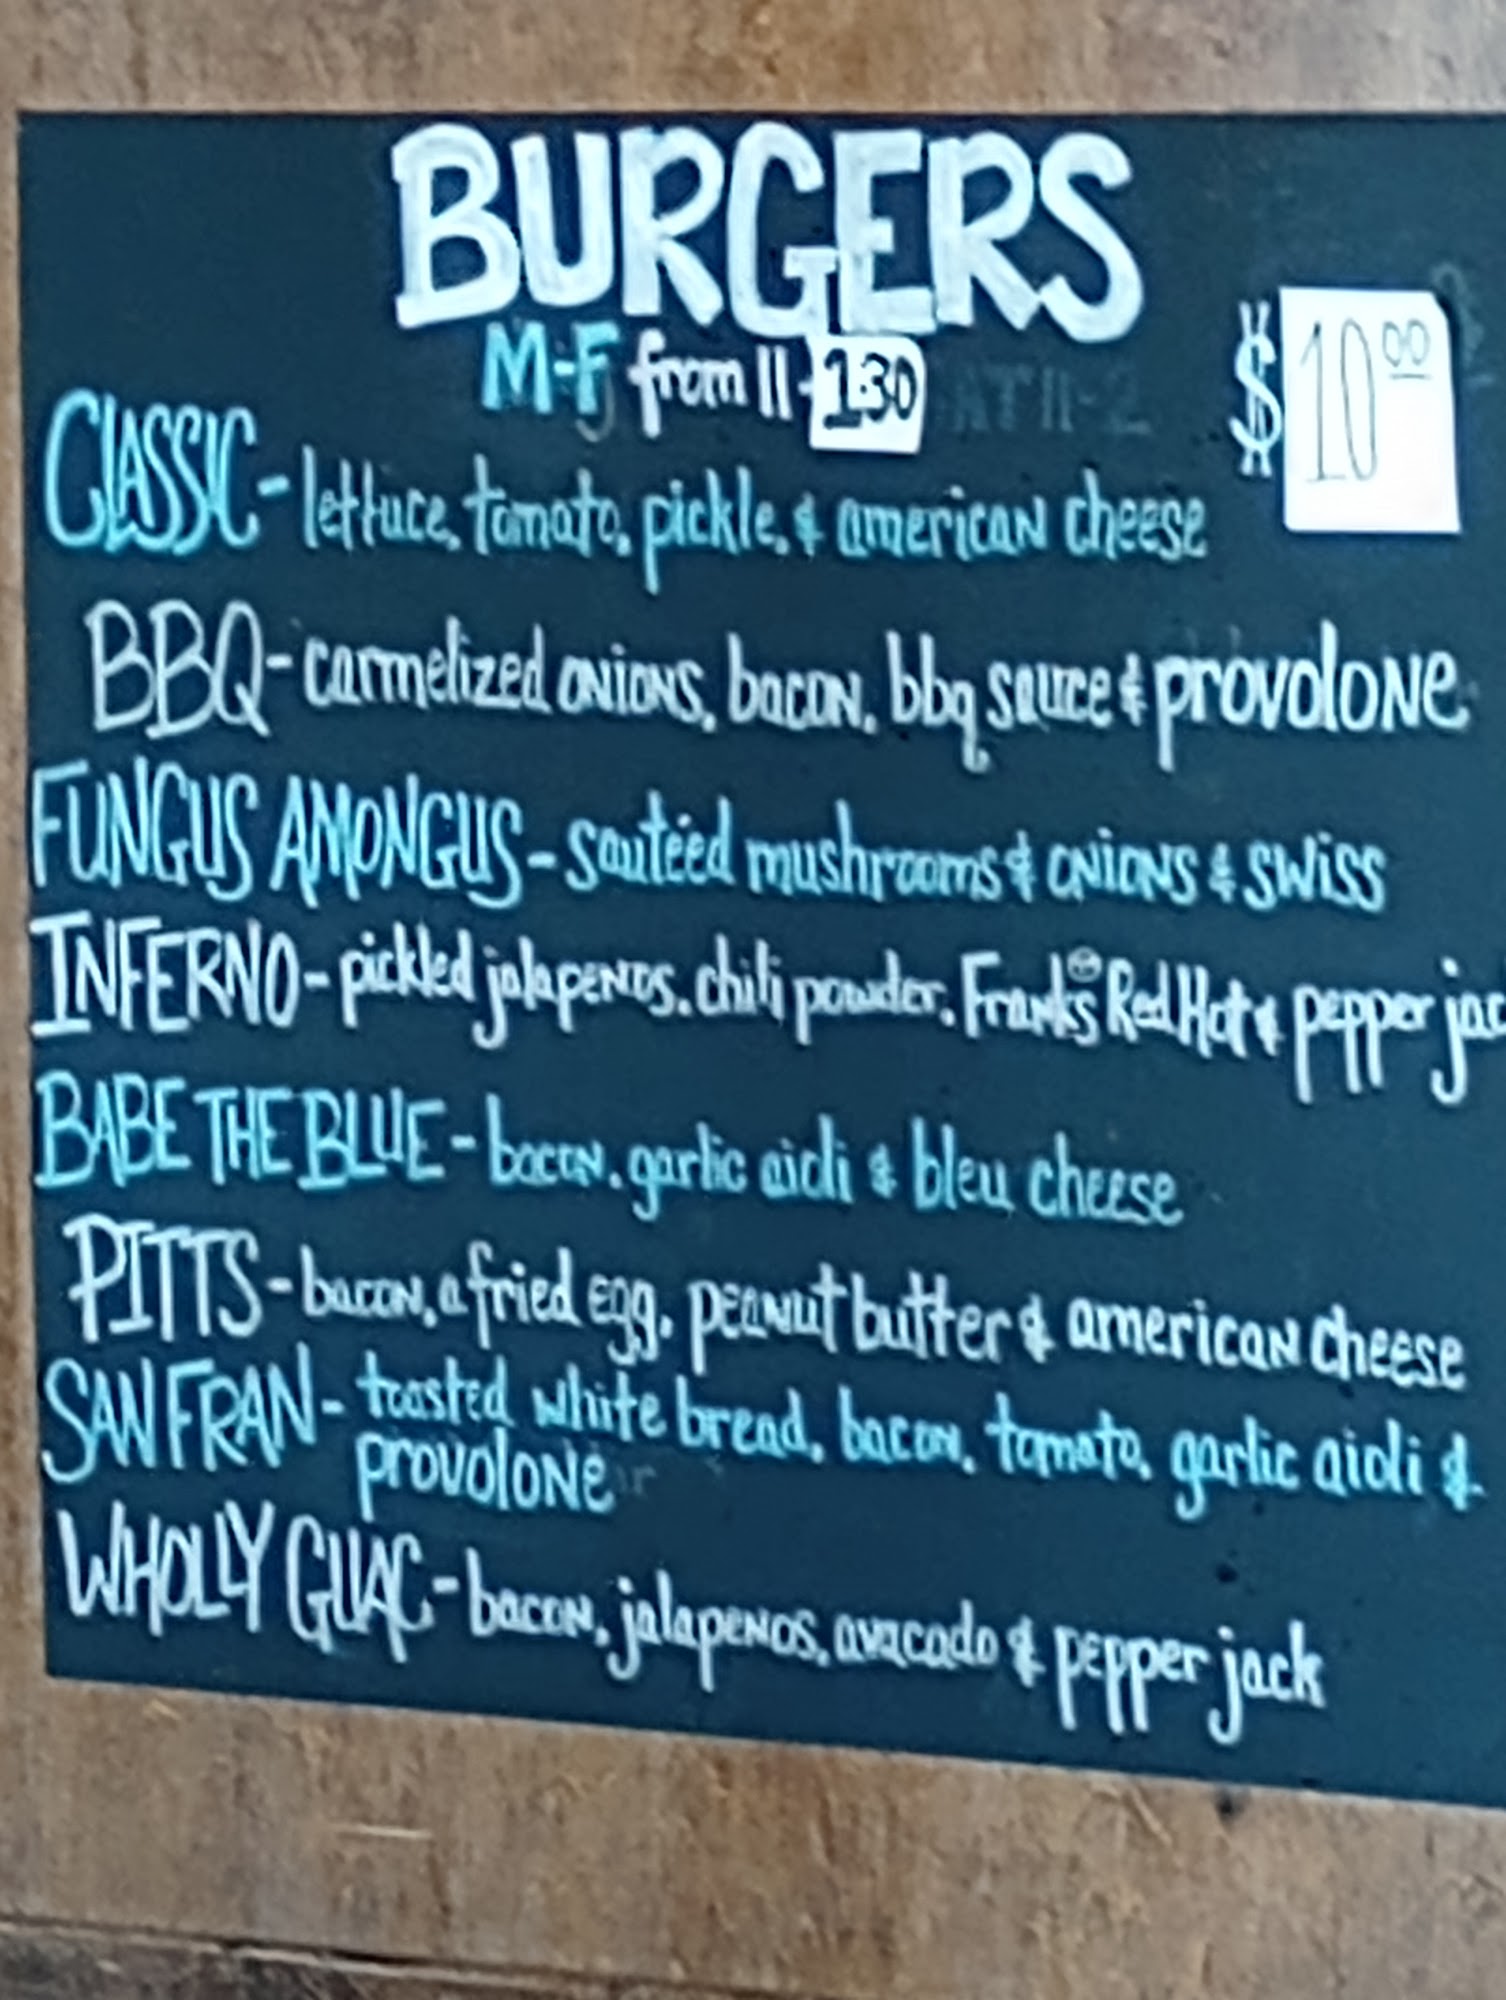 BURGERS
M-F from 11-1:30
$10.00
CLASSIC- lettuce, tomato, pickle, & american cheese
BBQ- carmelized onions, bacon, bbq sauce & provolone
FUNGUS AMONGUS- sautéed mushrooms & onions & swiss
INFERNO- pickled jalapenos, chili powder, Frank's Red Hot & pepper jac
BABE THE BLUE- bacon, garlic aioli & bleu cheese
PITTS- bacon, a fried egg, peanut butter & american cheese
SAN FRAN- toasted white bread, bacon, tomato, garlic aioli &
provolone
WHOLLY GUAC- bacon, jalapenos, avacado & pepper jack